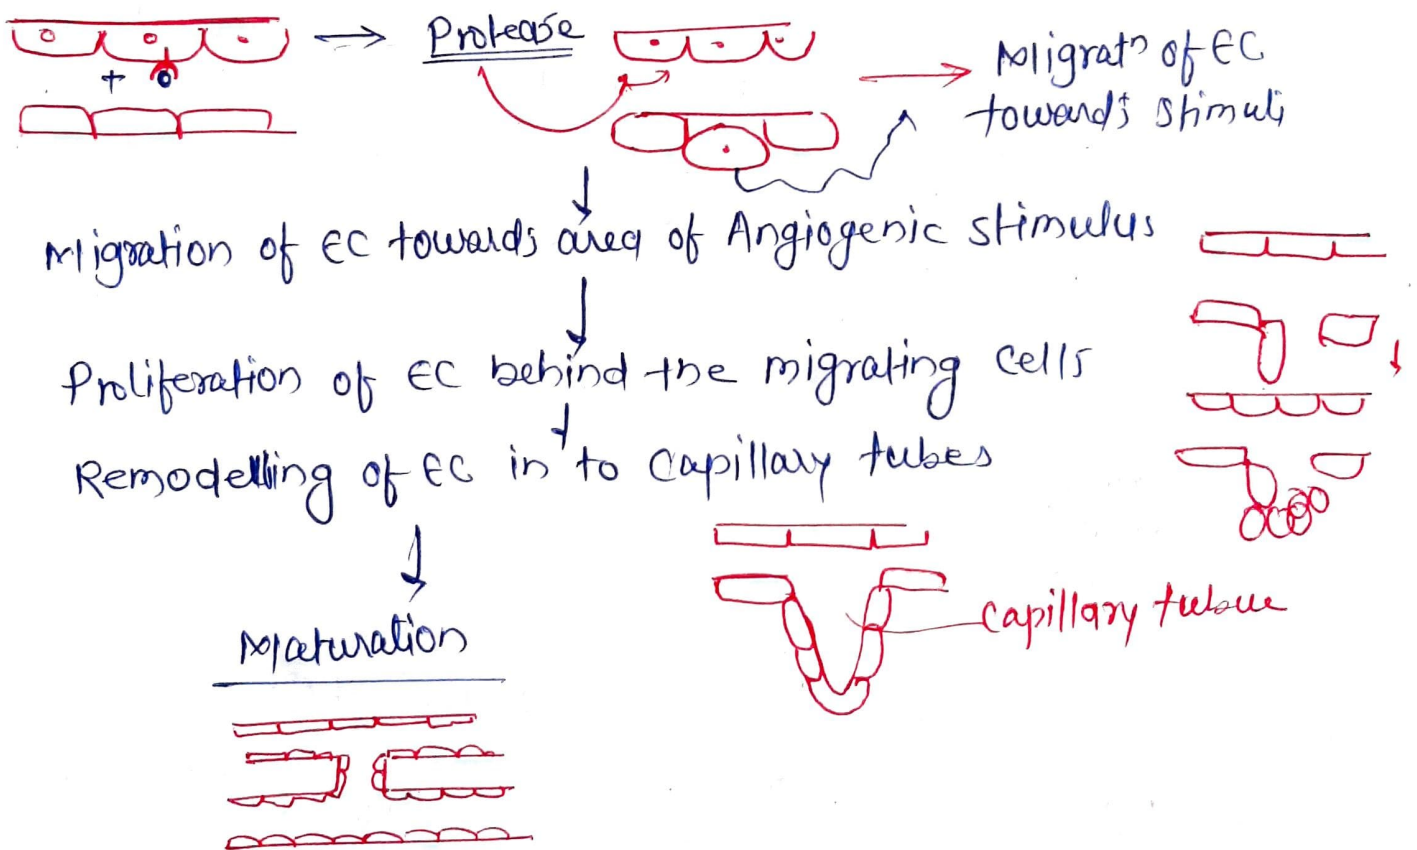 +
Protease
Migratn of EC
towards stimuli
Migration of EC towards area of Angiogenic stimulus
Proliferation of EC behind the migrating cells
Remodelling of EC in to capillary tubes
capillary tubue
Maturation